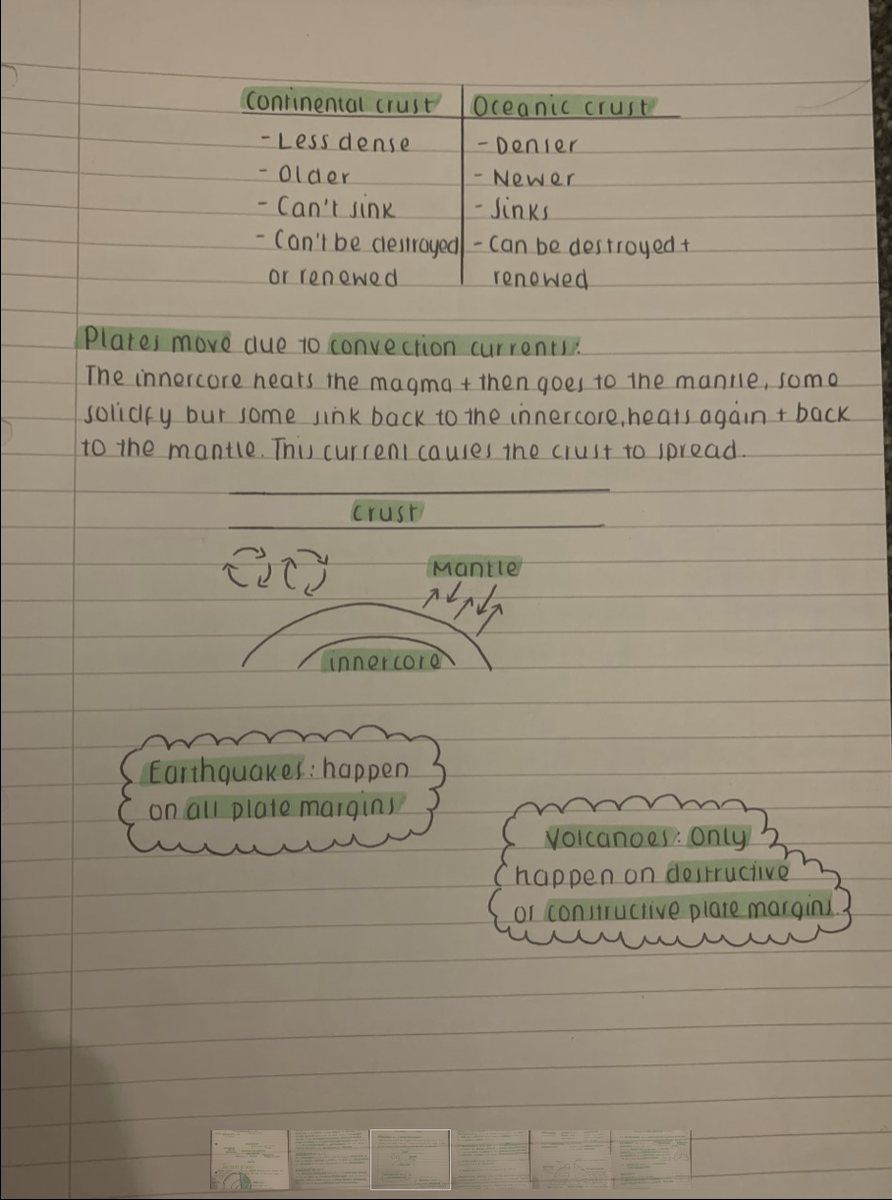 Continental crust
Oceanic crust
- Less dense
- Denser
- Older
- Newer
- Can't sink
- Sinks
- Can't be destroyed
- Can be destroyed +
or renewed
renewed
Plates move due to convection currents:
The innercore heats the magma + then goes to the mantle, some
solidfy but some sink back to the innercore, heats again + back
to the mantle. This current causes the crust to spread.
crust
Mantle
innercore
Earthquakes: happen
on all plate margins
Volcanoes: Only
happen on destructive
or constructive plate margins.